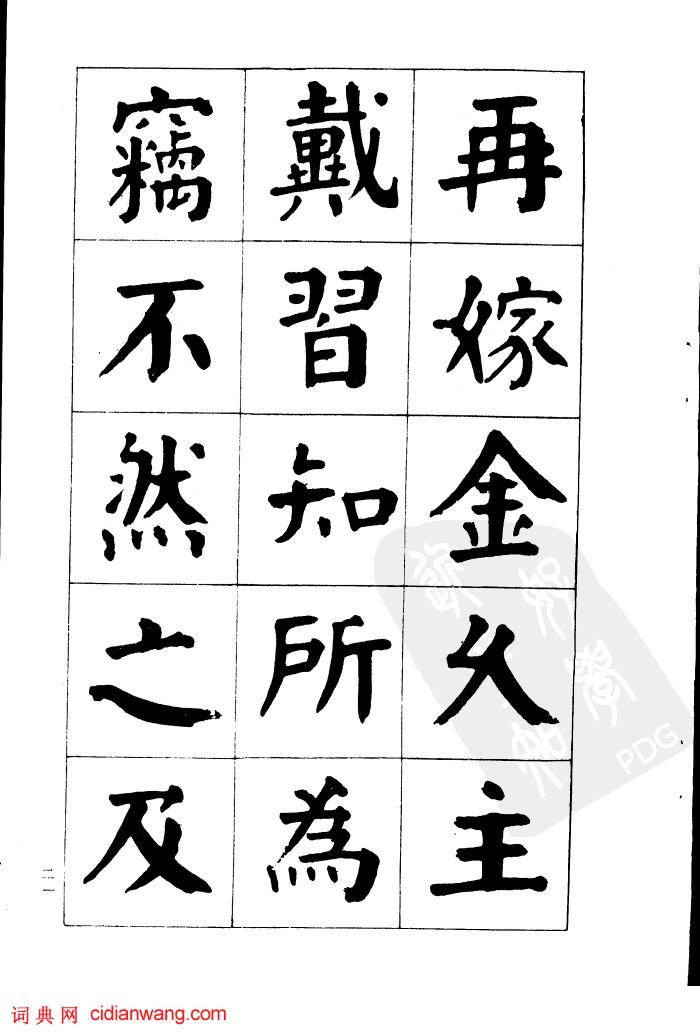 再嫁金久主
戴習知所為
竊不然之及
二一
PDG
词典网 cidianwang.com